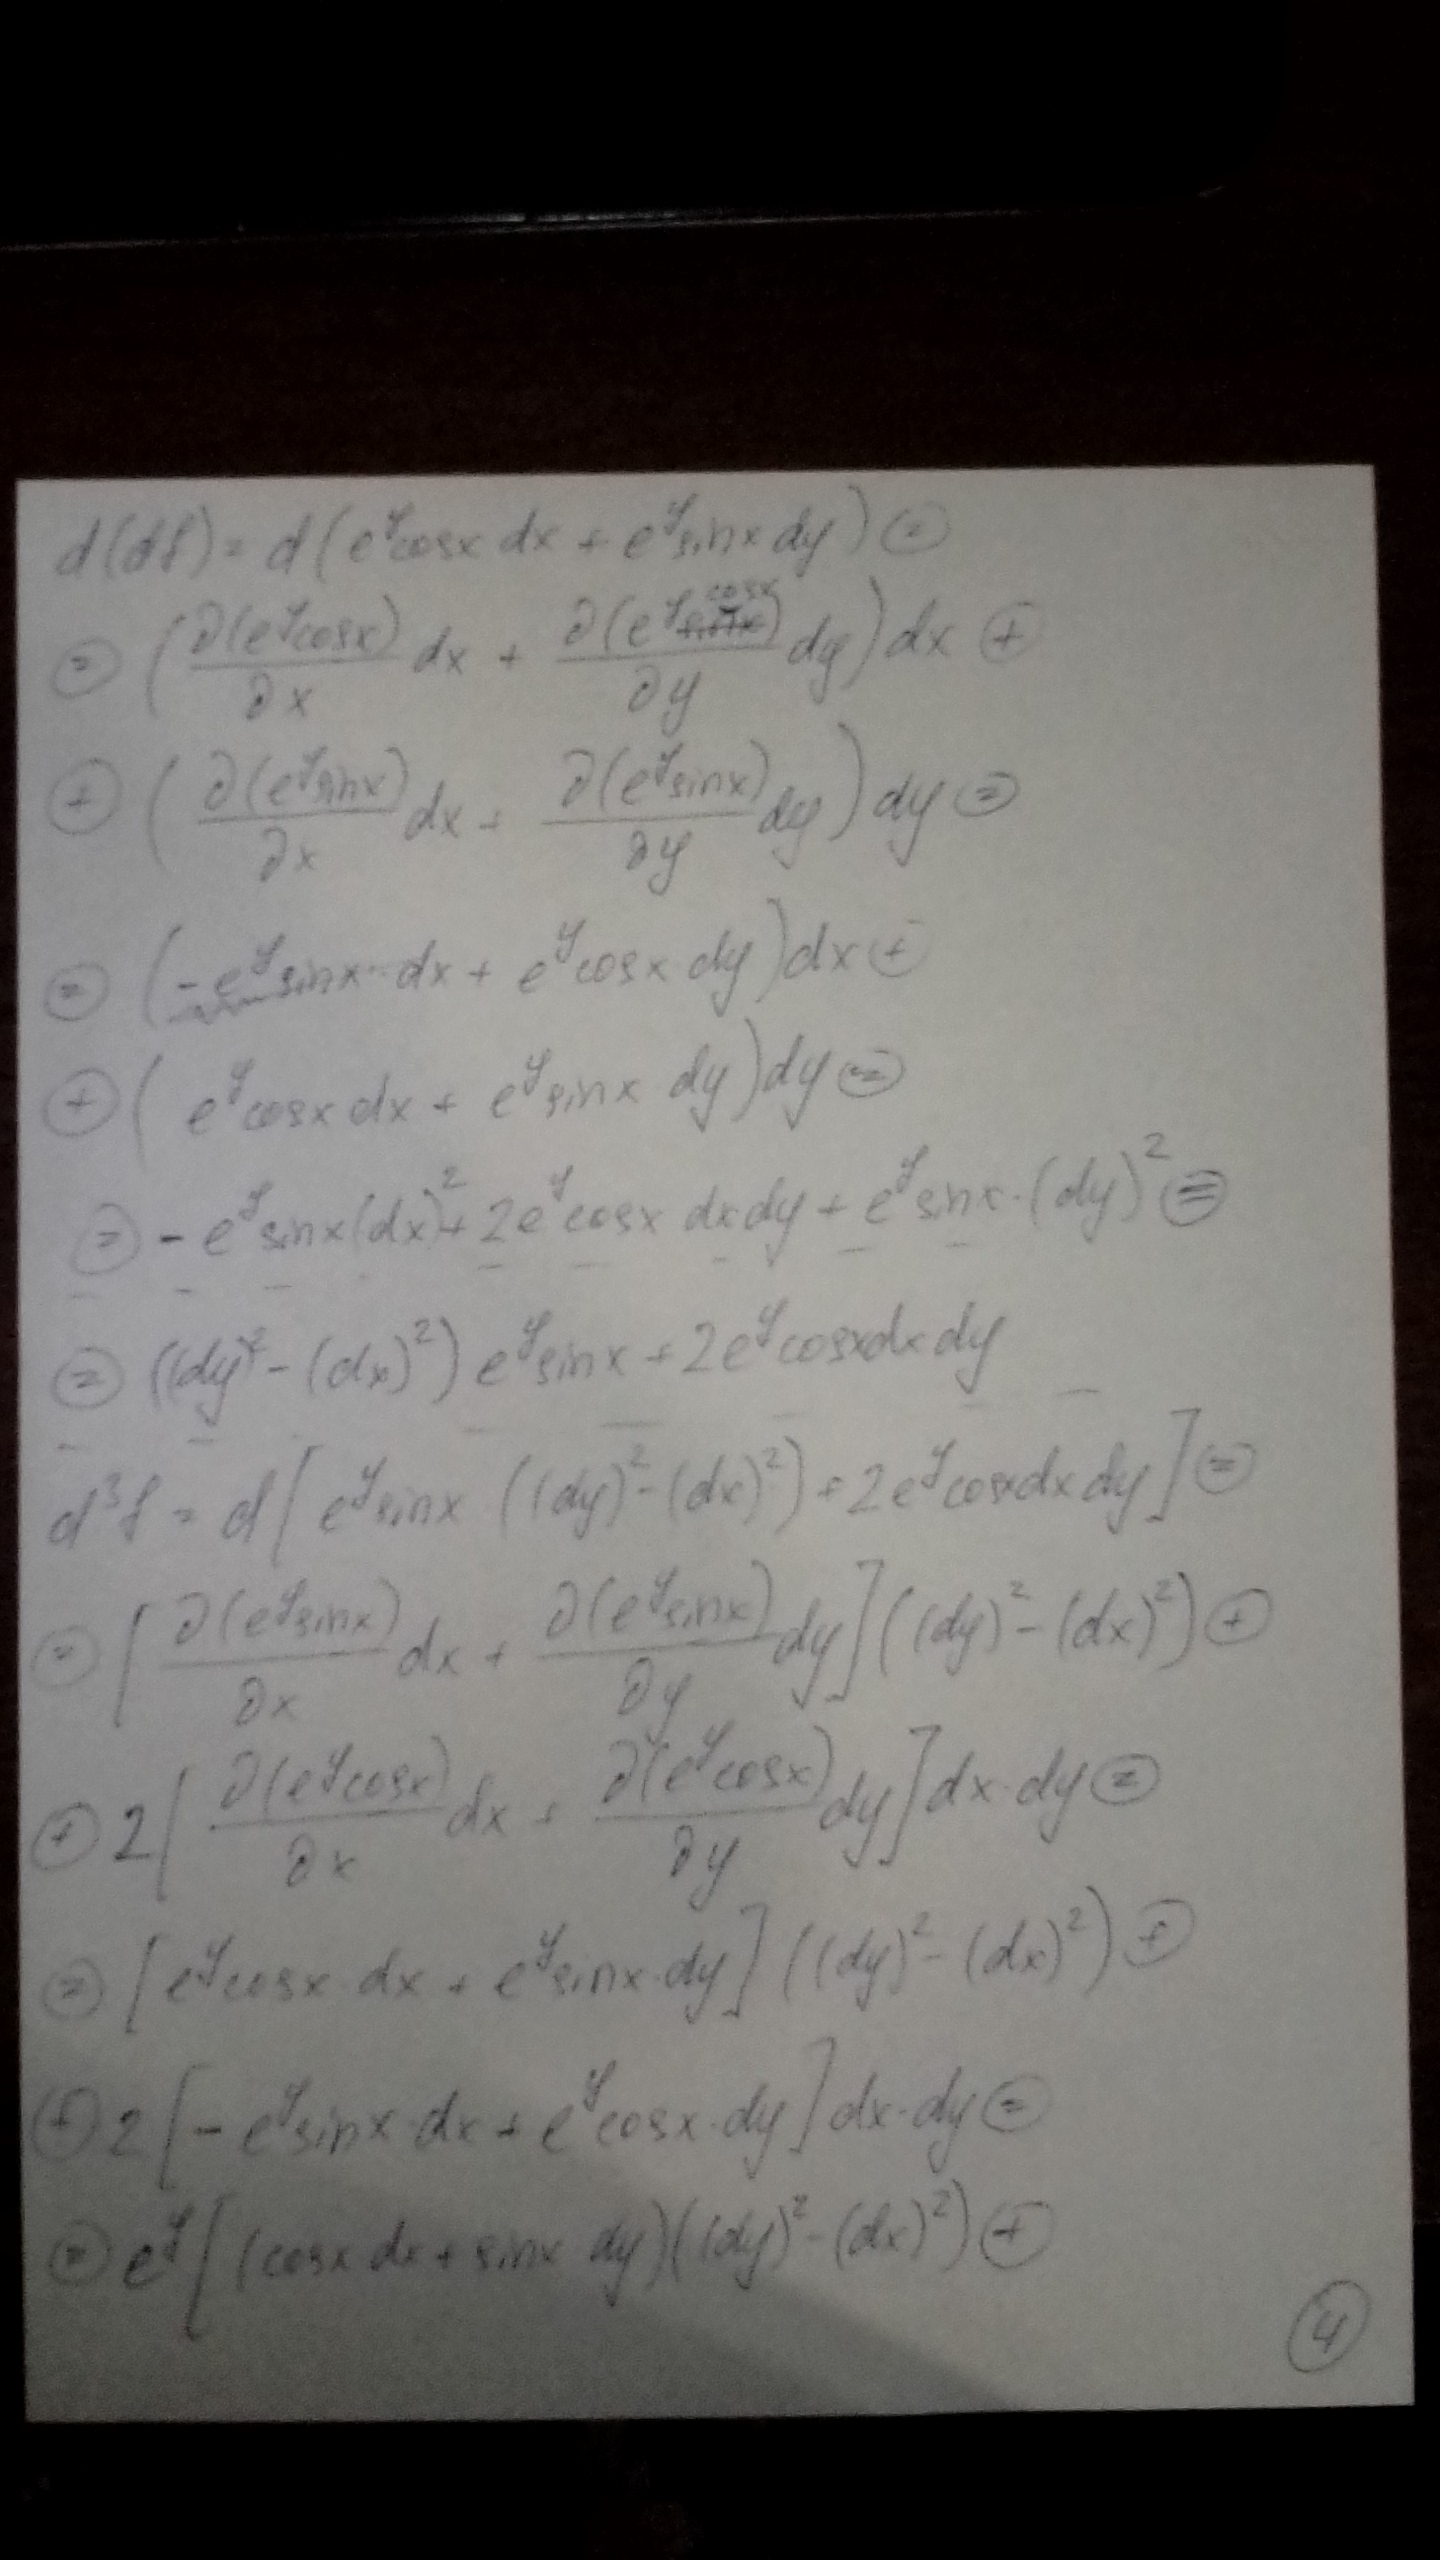 d(df) = d(e^y cosx dx + e^y sinx dy) ⊜
⊜ (∂(e^y cosx)/∂x dx + ∂(e^y cosx)/∂y dy) dx ⊕
⊕ (∂(e^y sinx)/∂x dx + ∂(e^y sinx)/∂y dy) dy ⊜
⊜ (-e^y sinx · dx + e^y cosx dy) dx ⊕
⊕ (e^y cosx dx + e^y sinx dy) dy ⊜
⊜ - e^y sinx (dx)^2 + 2e^y cosx dx dy + e^y sinx · (dy)^2 ⊜
⊜ ((dy)^2 - (dx)^2) e^y sinx + 2e^y cosx dx dy
d^3f = d[e^y sinx ((dy)^2 - (dx)^2) + 2e^y cosx dx dy] ⊜
⊜ [∂(e^y sinx)/∂x dx + ∂(e^y sinx)/∂y dy] ((dy)^2 - (dx)^2) ⊕
⊕ 2[∂(e^y cosx)/∂x dx + ∂(e^y cosx)/∂y dy] dx · dy ⊜
⊜ [e^y cosx · dx + e^y sinx · dy] ((dy)^2 - (dx)^2) ⊕
⊕ 2[- e^y sinx · dx + e^y cosx · dy] dx · dy ⊜
⊜ e^y [(cosx dx + sinx dy)((dy)^2 - (dx)^2) ⊕
4